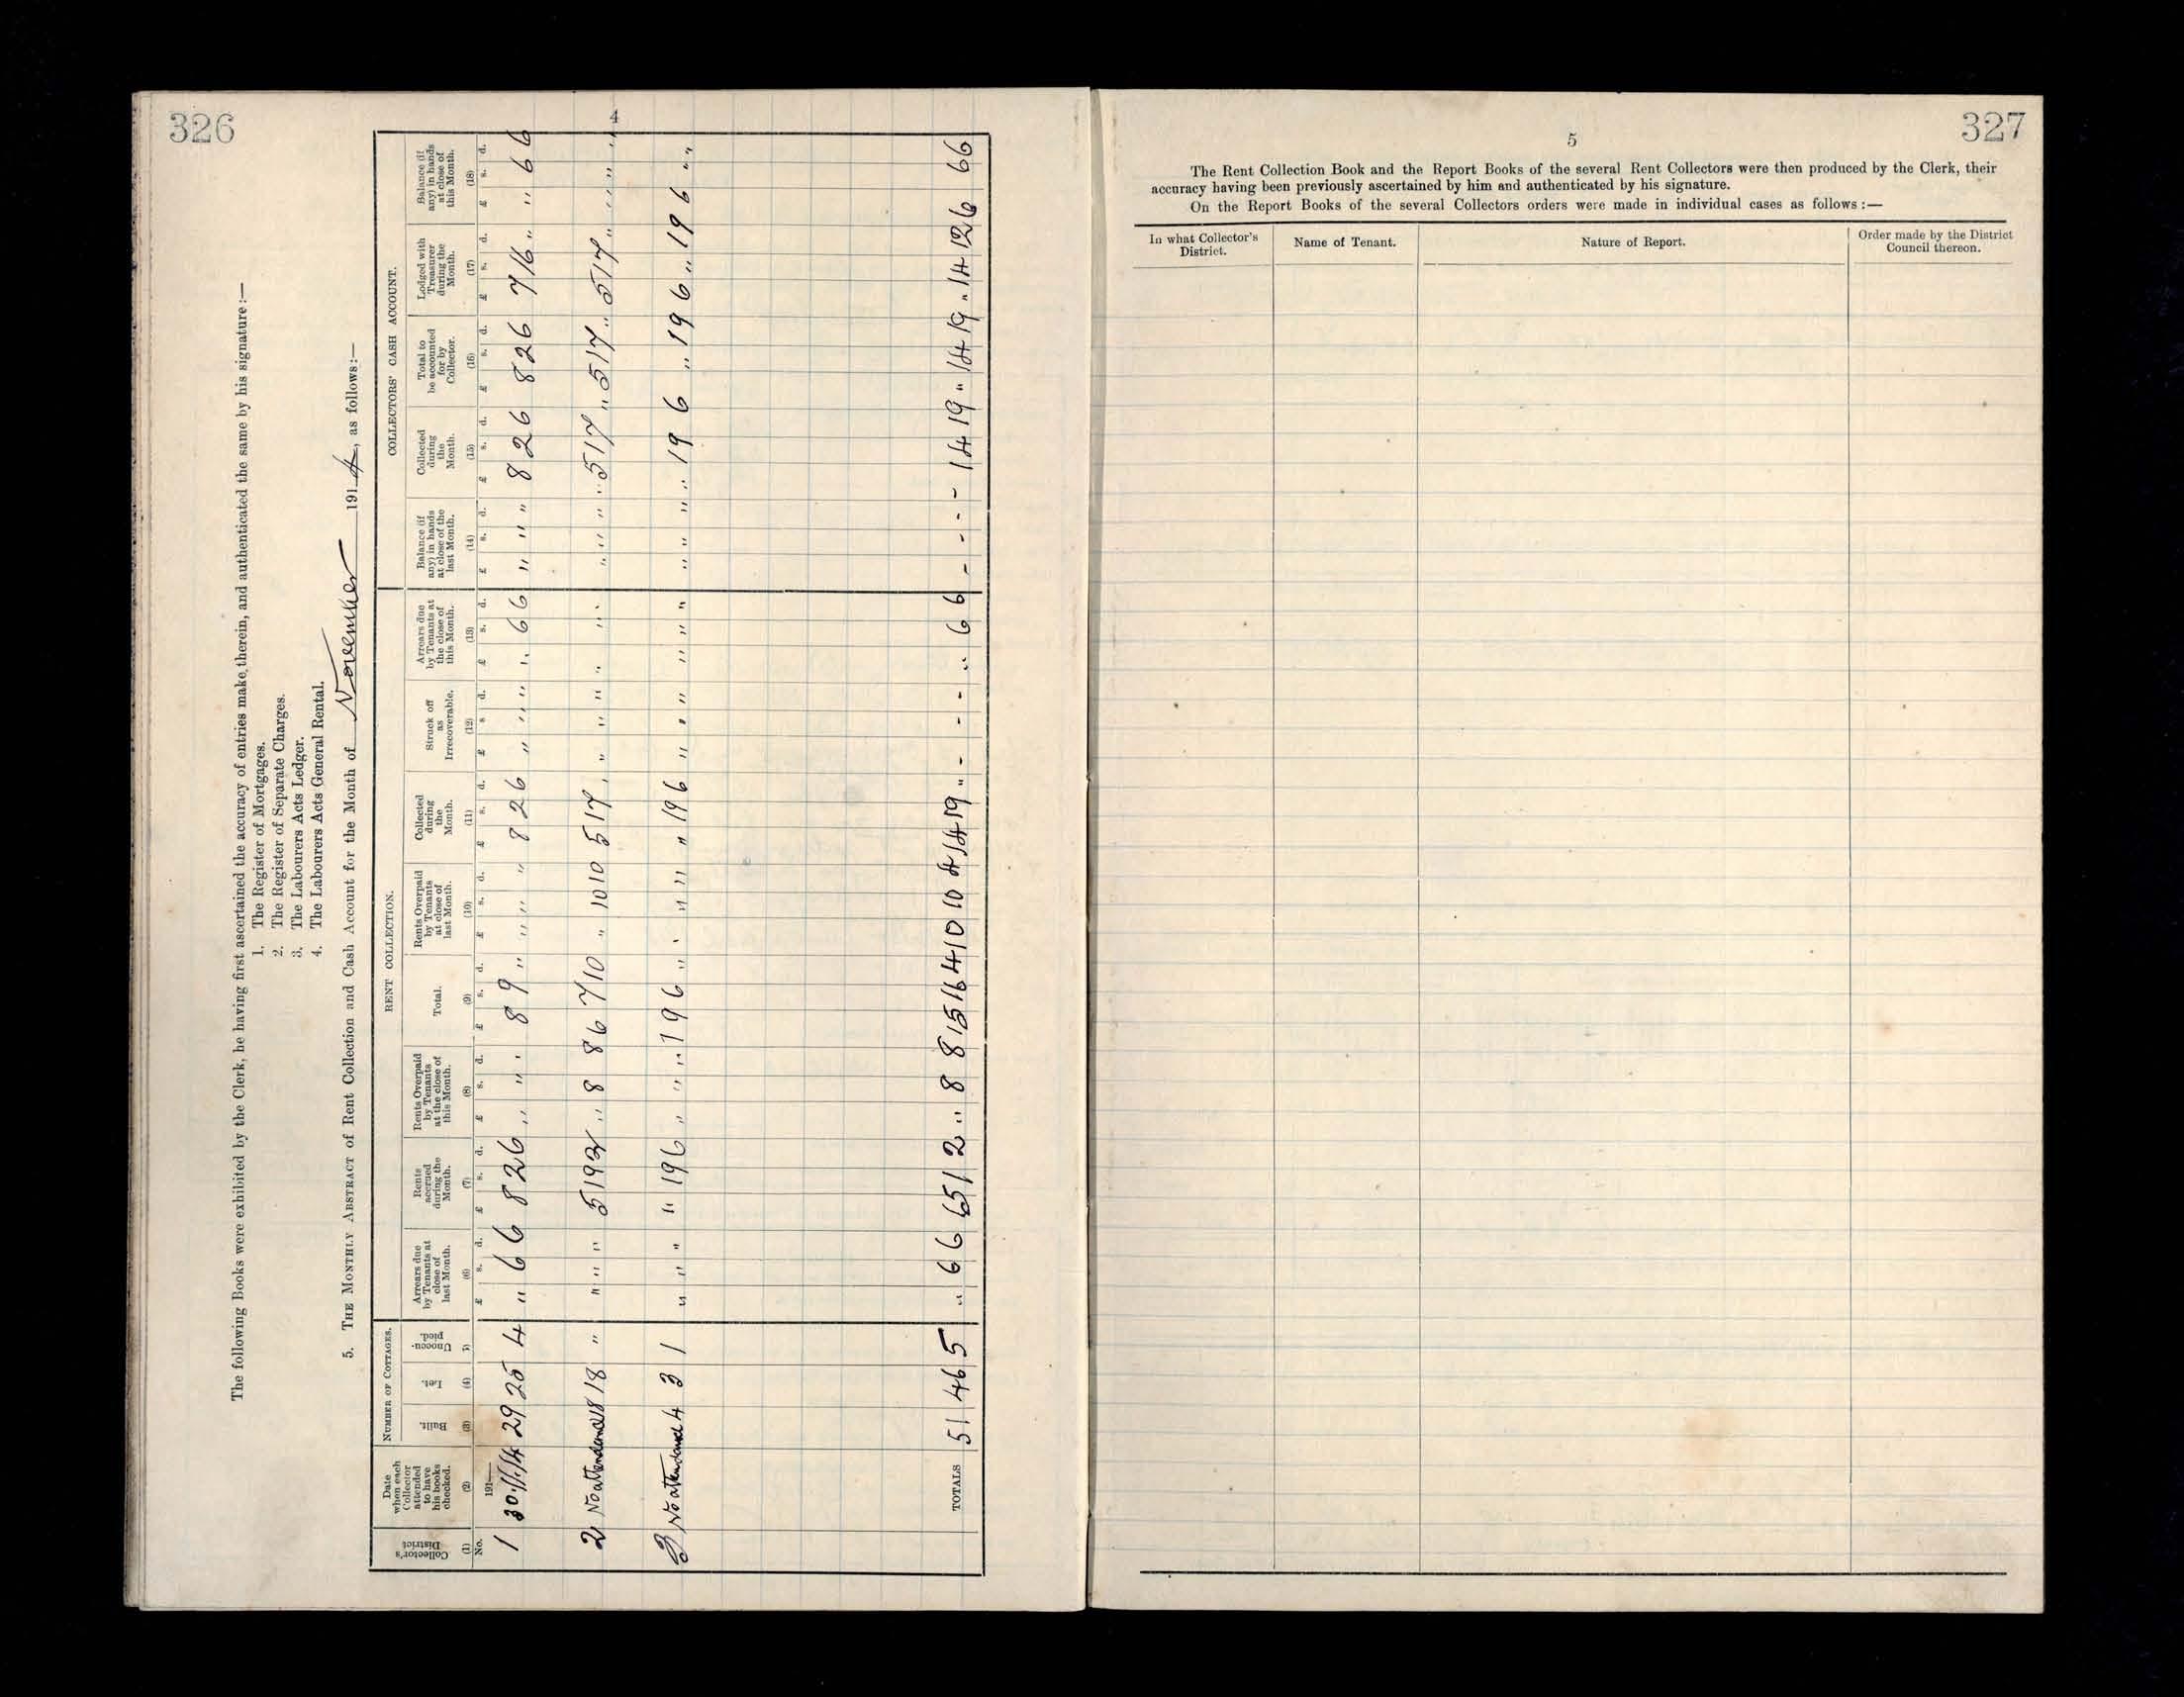 326
4
The following Books were exhibited by the Clerk, he having first ascertained the accuracy of entries make therein, and authenticated the same by his signature :—
1. The Register of Mortgages.
2. The Register of Separate Charges.
3. The Labourers Acts Ledger.
4. The Labourers Acts General Rental.
5. THE MONTHLY ABSTRACT of Rent Collection and Cash Account for the Month of November 1914, as follows:—
NUMBER OF COTTAGES. RENT COLLECTION. COLLECTORS' CASH ACCOUNT.
Collector's District (1) No.
Date when each Collector attended to have his books checked. (2) 191—
Built. (3)
Let. (4)
Unoccupied. (5)
Arrears due by Tenants at close of last Month. (6) £ s. d.
Rents accrued during the Month. (7) £ s. d.
Rents Overpaid by Tenants at the close of this Month. (8) £ s. d.
Total. (9) £ s. d.
Rents Overpaid by Tenants at close of last Month. (10) £ s. d.
Collected during the Month. (11) £ s. d.
Struck off as Irrecoverable. (12) £ s d.
Arrears due by Tenants at the close of this Month. (13) £ s. d.
Balance (if any) in hands at close of the last Month. (14) £ s. d.
Collected during the Month. (15) £ s. d.
Total to be accounted for by Collector. (16) £ s. d.
Lodged with Treasurer during the Month. (17) £ s. d.
Balance (if any) in hands at close of this Month. (18) £ s. d.
1 30/11/14 29 25 4 " 6 6 8 2 6 " " " 8 9 " " " " 8 2 6 " " " " 6 6 " " " 8 2 6 8 2 6 7 16 " " 6 6
2 No attendance 18 18 " " " " 5 19 2 " 8 8 6 7 10 " 10 10 5 17 " " " " " " " " " " 5 17 " 5 17 " 5 17 " " " "
3 No attendance 4 3 1 " " " " 19 6 " " " " 19 6 " " " " 19 6 " " " " " " " " " " 19 6 " 19 6 " 19 6 " "
TOTALS 51 46 5 " 6 6 15 1 2 " 8 8 15 16 4 10 10 14 19 " - - - " 6 6 - - - 14 19 " 14 19 " 14 12 6 6 6
327
5
The Rent Collection Book and the Report Books of the several Rent Collectors were then produced by the Clerk, their
accuracy having been previously ascertained by him and authenticated by his signature.
On the Report Books of the several Collectors orders were made in individual cases as follows :—
In what Collector's District.
Name of Tenant.
Nature of Report.
Order made by the District Council thereon.